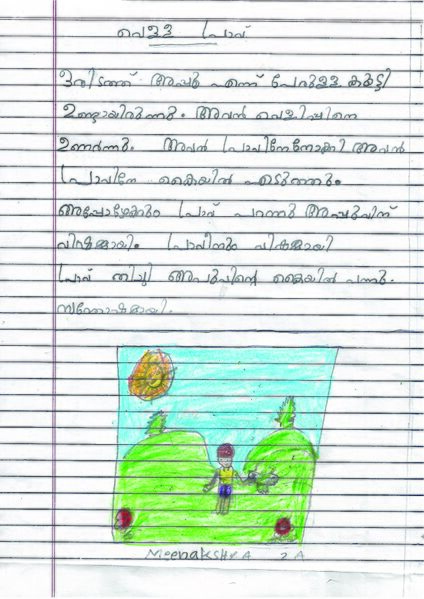 വെള്ള പ്രാവ്
ഒരിടത്ത് അപ്പു എന്ന് പേരുള്ള കുട്ടി
ഉണ്ടായിരുന്നു. അവൻ വെളിപ്പിനെ
ഉണർന്നു. അവൻ പ്രാവിനേനോക്കി അവൻ
പ്രാവിനേ കൈയിൽ എടുത്തും
അപ്പോഴേക്കും പ്രാവ് പറന്നു അപ്പുവിന്
വിഷമമായി. പ്രാവിനും വിഷമമായി
പ്രാവ് തിരിച്ചു അപ്പുവിന്റെ കൈയിൽ വന്നു.
സന്തോഷമായി.
Meenakshy A 2 A